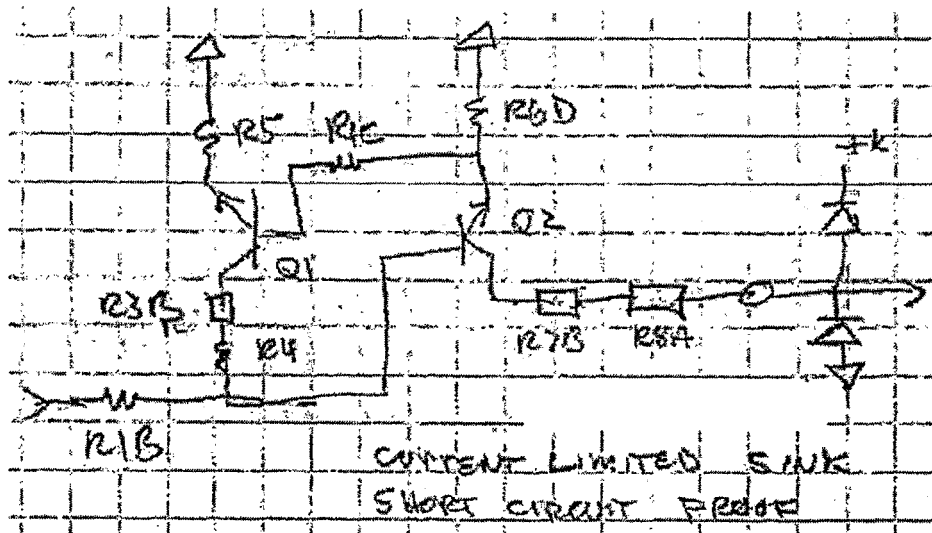 R5
R6D
+k
Q2
Q1
R4
R7B
R8A
R1B
CURRENT LIMITED SINK
SHORT CIRCUIT PROOF